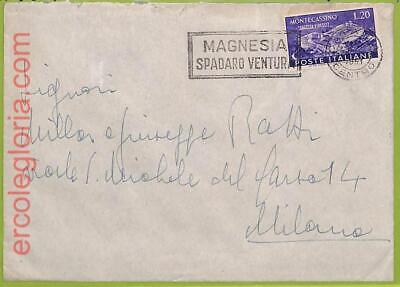 MAGNESIA
SPADARO VENTURA
MONTECASSINO
L.20
POSTE ITALIANE
CENTRO
Signori
Giuseppe Ratti
Viale S. Michele del Carso 14
Milano
ercolegloria.com